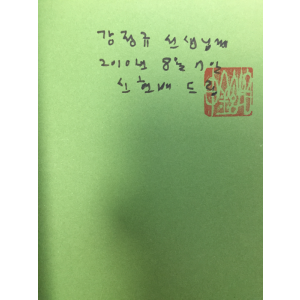 강정규 선생님께
2010년 8월 서안
신현배 드림